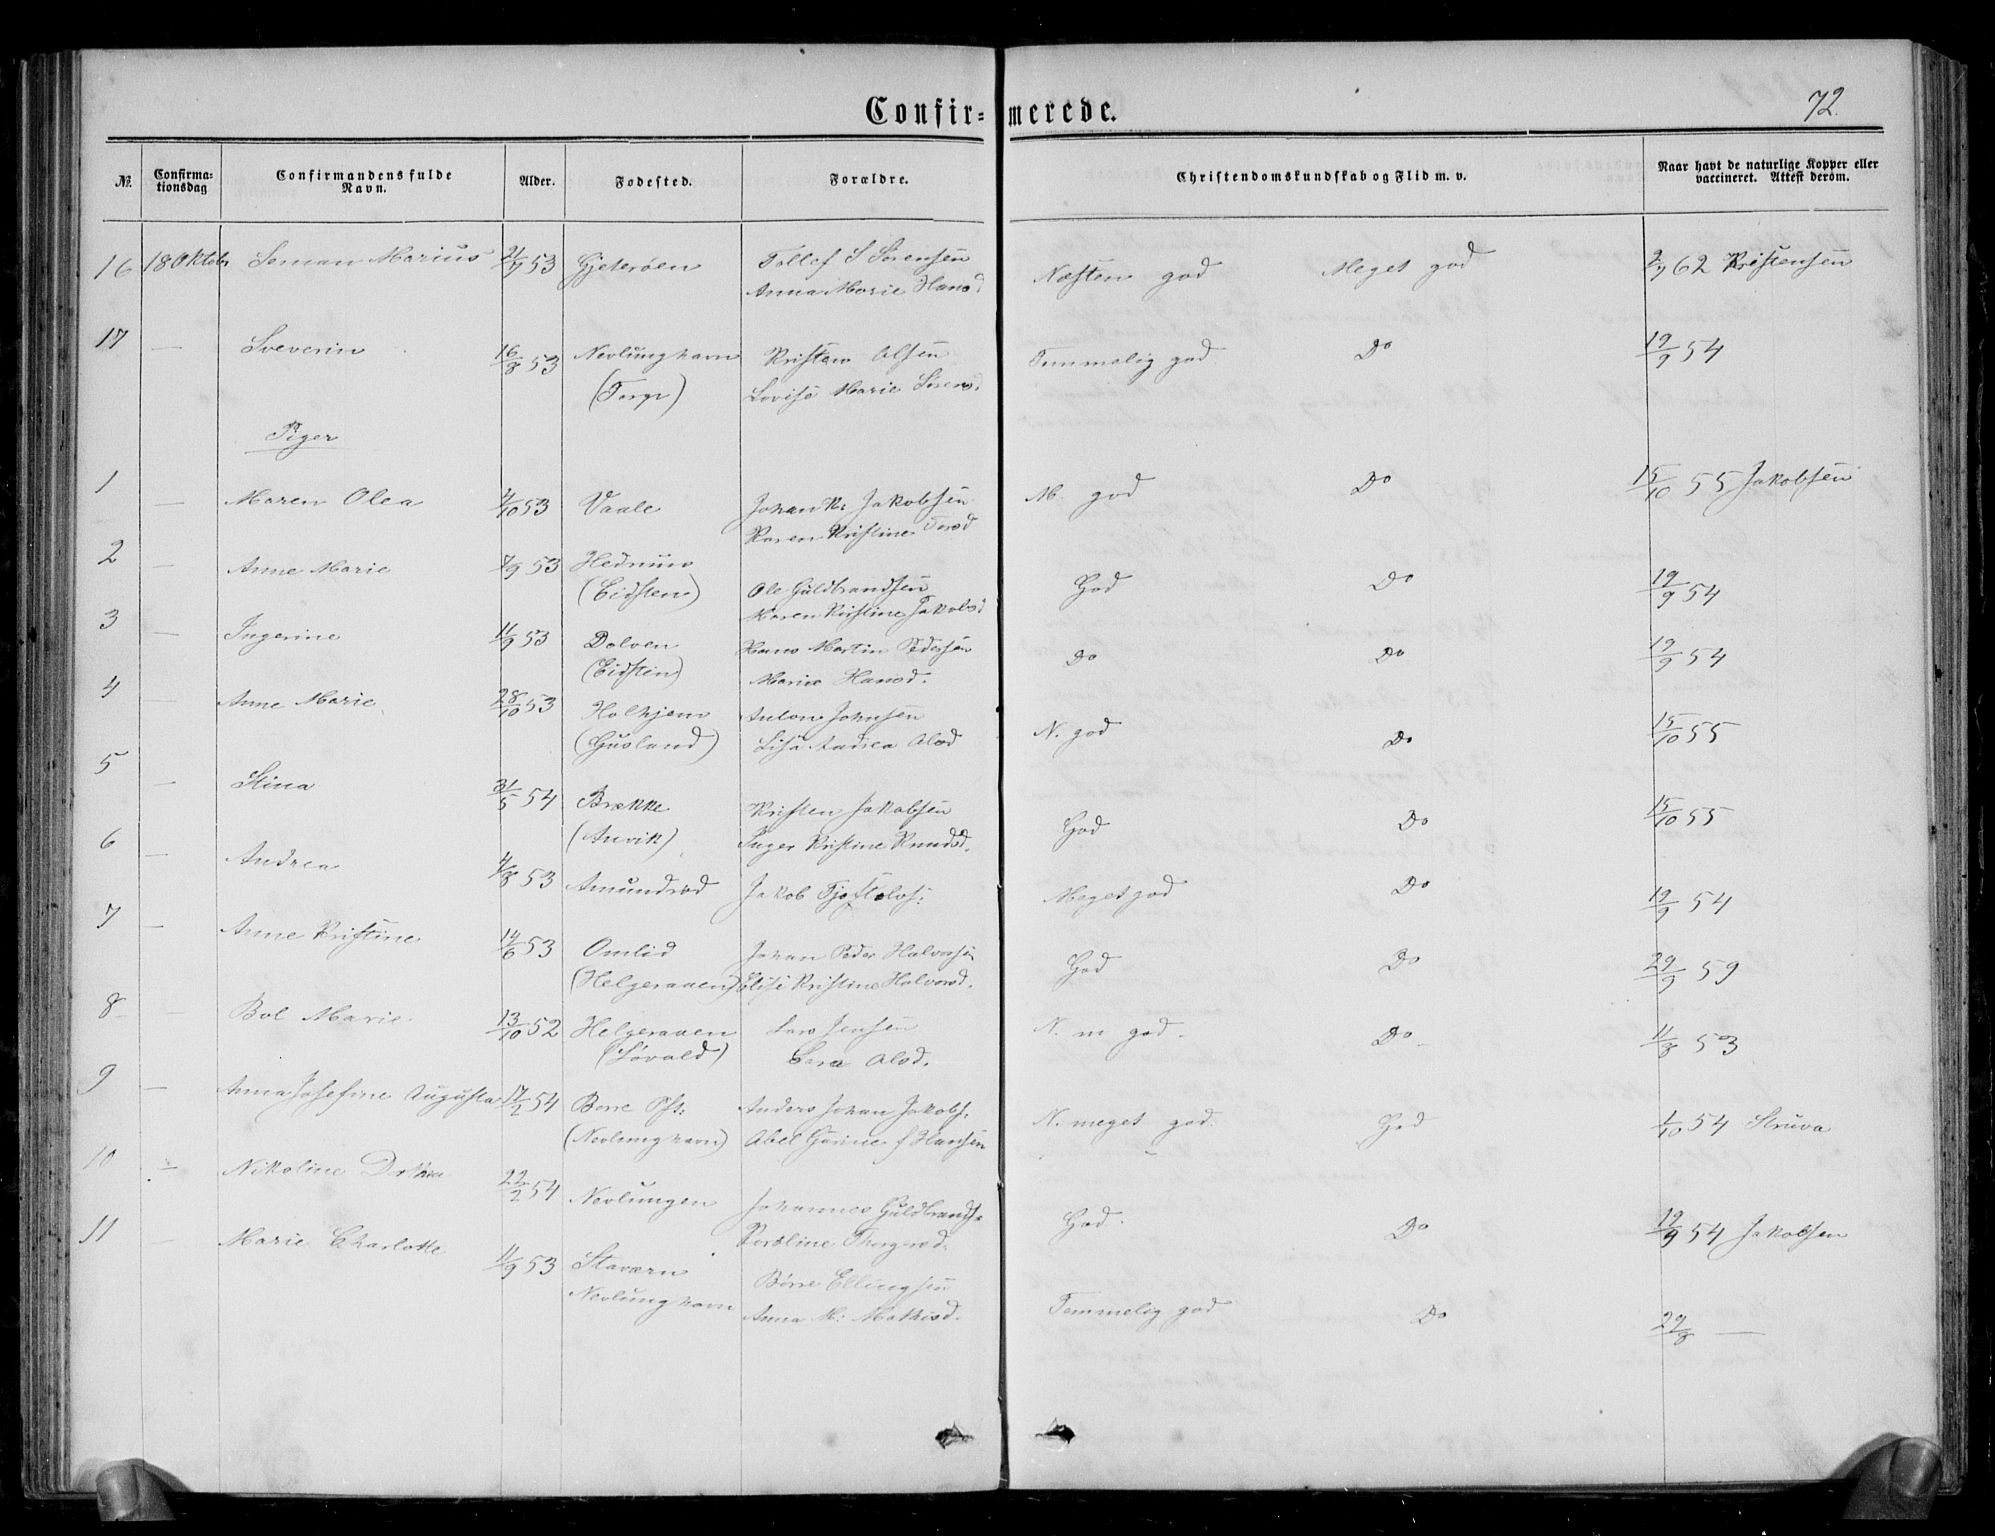 Confirmerede.
72.
No.
Confirmationsdag
Confirmandens fulde Navn.
Alder.
Fødested.
Forældre.
Christendomskundskab og Flid m. v.
Naar havt de naturlige Kopper eller vaccineret. Attest derom.
16 18 Oktober Soman Marius 21/7 53 Gjeterøen Tollef S Sørensen Næsten god Meget god 2/7 62 Kristensen
Anna Marie Hansd
17 — Severin 16/8 53 Nevlunghavn Kristen Olsen Temmelig god Do 19/9 54
(Torp) Lovise Marie Sørensd.
Piger
1 — Maren Olea 4/10 53 Vaale Johan K. Jakobsen M. god Do 15/10 55 Jakobsen
Karen Kristine
2 — Anne Marie 7/9 53 Hedrum Ole Guldbrandsen God Do 19/9 54
(Eidsten) Maren Kristine Jakobsd
3 — Ingerine 11/9 53 Dolven Hans Martin Pedersen Do Do 19/9 54
(Eidsten) Marie Hansd.
4 — Anne Marie 28/10 53 Holhjem Anton Johnsen N. god Do 15/10 55
(Gusland) Lisa Andrea Olsd
5 — Stina 31/5 54 Brekke Kristen Jakobsen God Do 15/10 55
(Anvik) Inger Kristine Knudsd.
6 — Andrea 4/8 53 Amundrød Jakob Meget god Do 19/9 54
7 — Anne Kristine 14/6 53 Omlid Johan Peder Halvorsen God Do 29/9 59
(Helgeraaen) Elise Kristine Halvorsd.
8 — Bol Marie 13/10 52 Helgeraaen Lars Jensen N. m god. Do 11/8 53
(Løvald) Sara Olsd.
9 — Anna Josefine Augusta 17/2 54 Borre Pst: Anders Johan Jakobs. N. meget god. God 1/10 54 Struva
(Nevlunghavn) Abel Gurine f Hansen
10 — Nikoline Dothea 22/2 54 Nevlungen Johannes Guldbrands. God. Do 19/9 54 Jakobsen
Thorgersd.
11 — Marie Charlotte 11/9 53 Staværn Børre Ellingsen Temmelig god Do 29/8 —
Nevlunghavn Anna M: Mathisd.